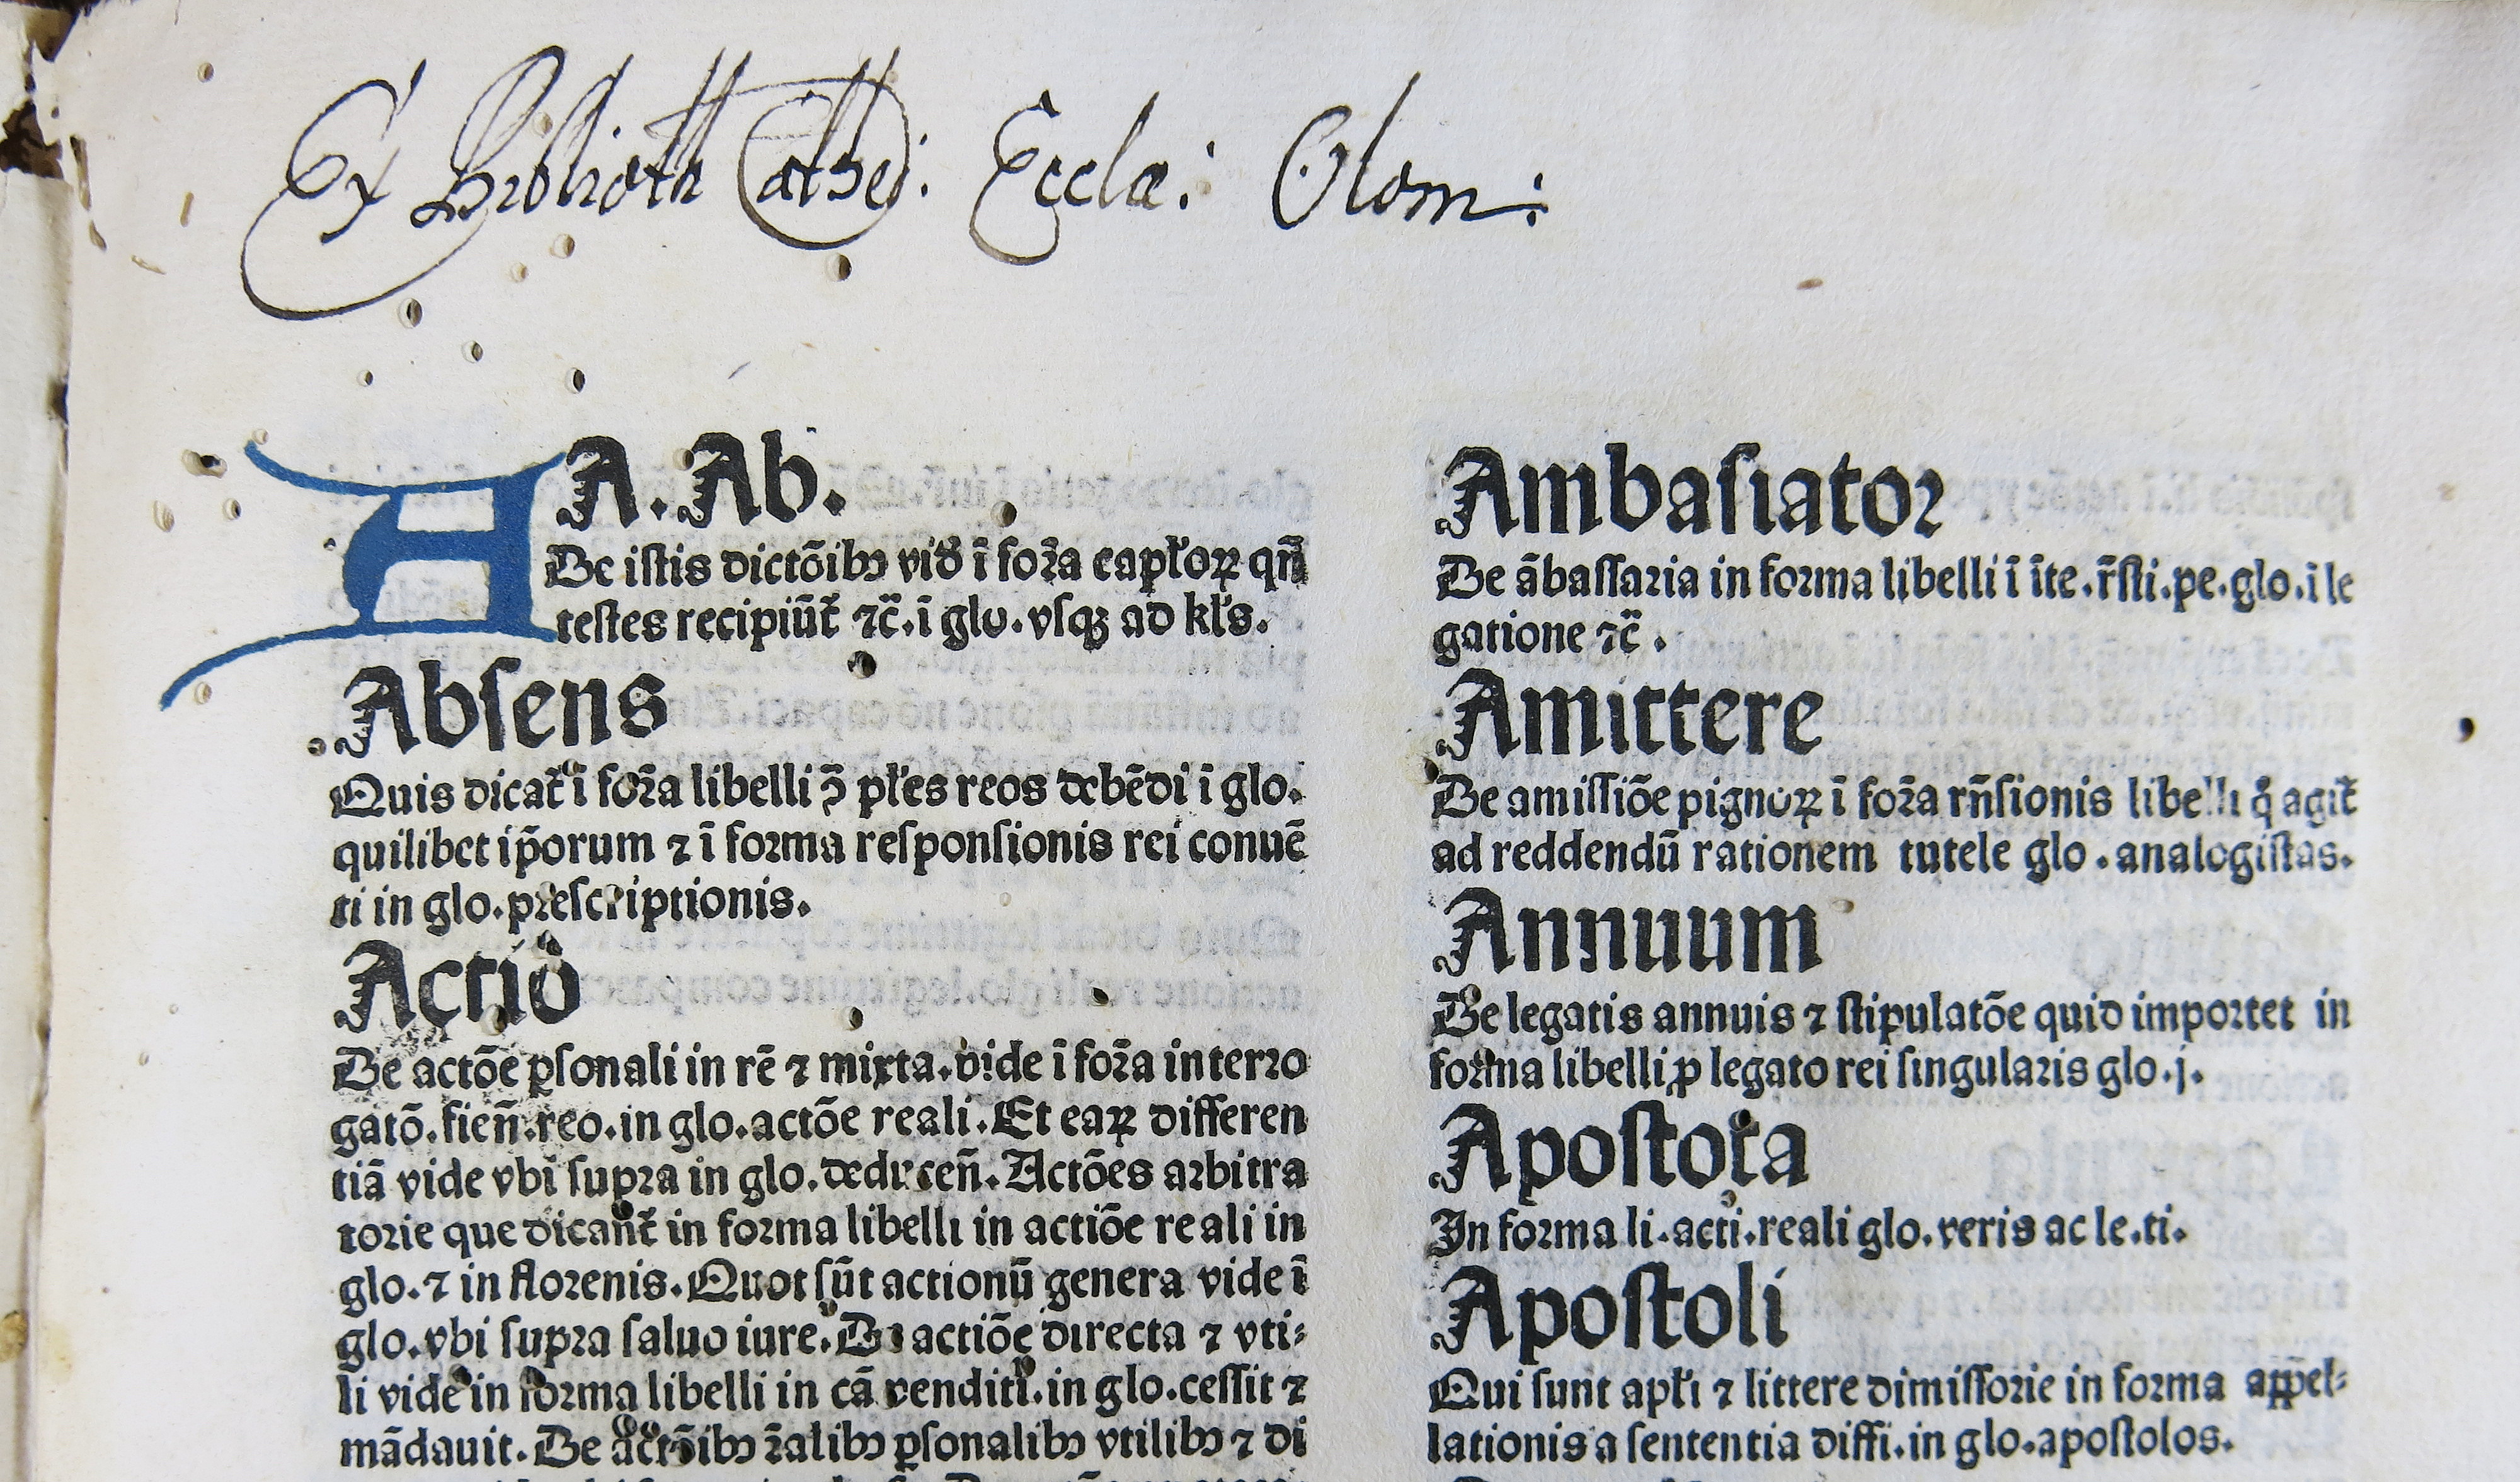 Ex Biblioth Cathed: Eccłæ: Olom:
A. Ab.
De iſtis dictõibꝰ vid̛ ĩ foꝛ̃a capłoꝝ qñ
teſtes recipiũt̃ ⁊c̃. ĩ glo. vſqꝫ ad kl's.
Abſens
Quis dicat̃ ĩ foꝛ̃a libelli ꝯ̃ pl'es reos debẽdi ĩ glo.
quilibet ip̃orum ⁊ ĩ forma reſponſionis rei conuẽ
ti in glo. preſcriptionis.
Actio
De actõe ꝑſonali in rẽ ⁊ mixta. vide ĩ foꝛ̃a interro
gatõ. fieñ. reo. in glo. actõe reali. Et eaꝝ differen
tiã vide vbi ſupra in glo. deducen̄. Actões arbitra
torie que dicãnt̃ in forma libelli in actiõe reali in
glo. ⁊ in florenis. Quot ſũt actionũ genera vide ĩ
glo. vbi ſupra ſaluo iure. De actiõe directa ⁊ vti⸗
li vide in forma libelli in cã venditi. in glo. ceſſit ⁊
mãdauit. De actõibꝰ r̃alibꝰ ꝑſonalibꝰ vtilibꝰ ⁊ di
Ambaſiator
De ãbaſſaria in forma libelli ĩ ĩte. r̃ſti. pe. glo. ĩ le
gatione ⁊c̃.
Amittere
De amiſſiõe pignoꝝ ĩ foꝛ̃a rñſionis libelli q̊ agit̃
ad reddendũ rationem tutele glo. analogiſtas.
Annuum
De legatis annuis ⁊ ſtipulatõe quid importet in
forma libelli ꝓ legato rei ſingularis glo. j.
Apoſtota
In forma li. acti. reali glo. veris ac le. ti.
Apoſtoli
Qui ſunt apłi ⁊ littere dimiſſorie in forma apꝑel⸗
lationis a ſententia diffi. in glo. apoſtolos.